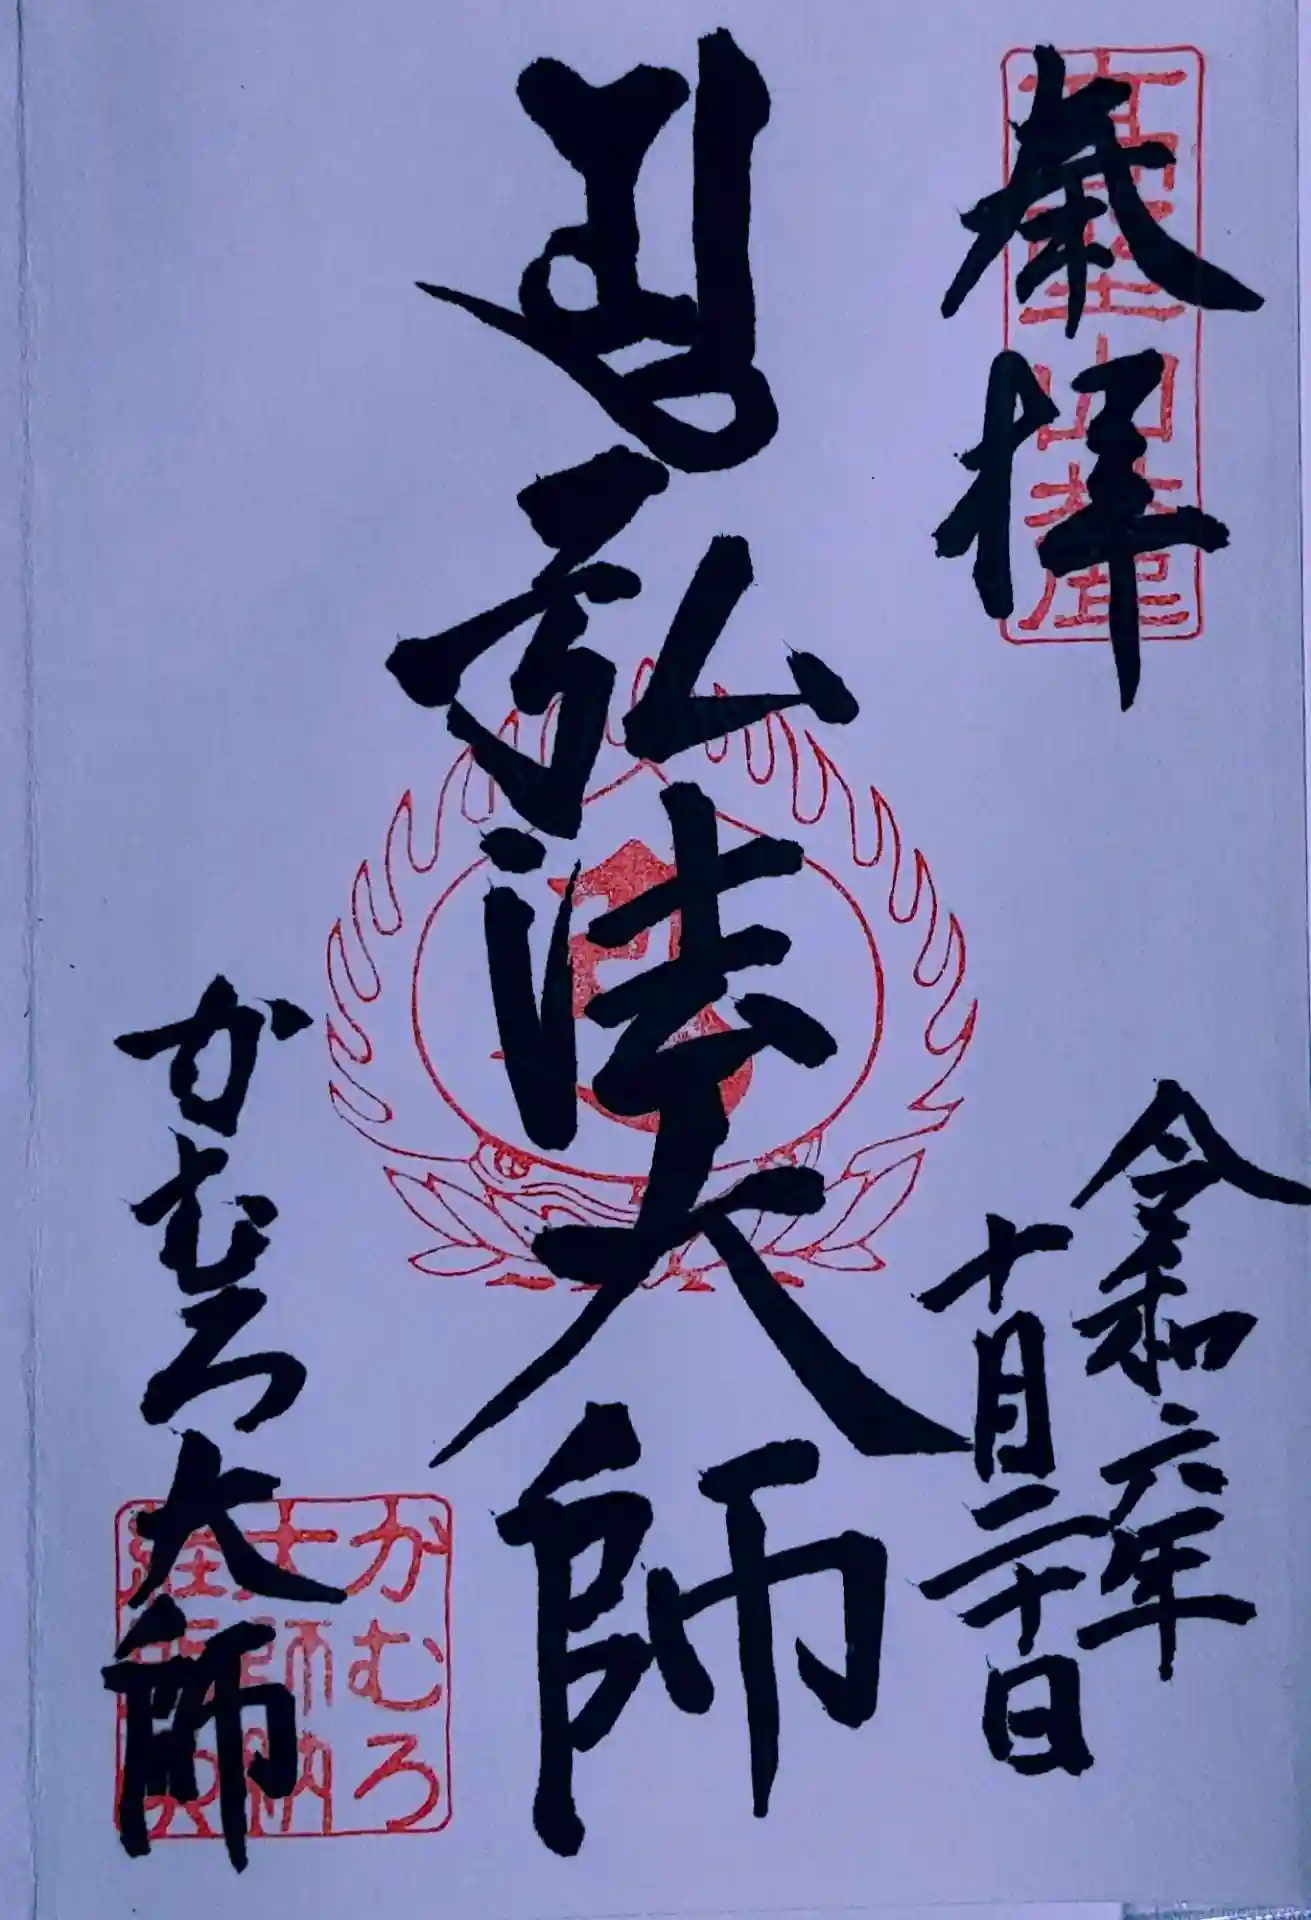 奉拝
高野山麓
令和六年
十月二十日
弘法大師
かむろ大師
かむろ
大師納
経